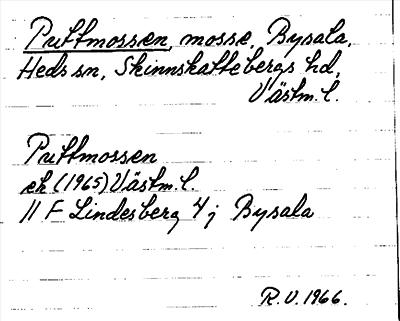 Puttmossen, mosse, Bysala,
Heds sn, Skinnskattebergs hd,
Västm. l.
Puttmossen
ek (1965) Västm. l.
11 F Lindesberg 4 j Bysala
R.V. 1966.